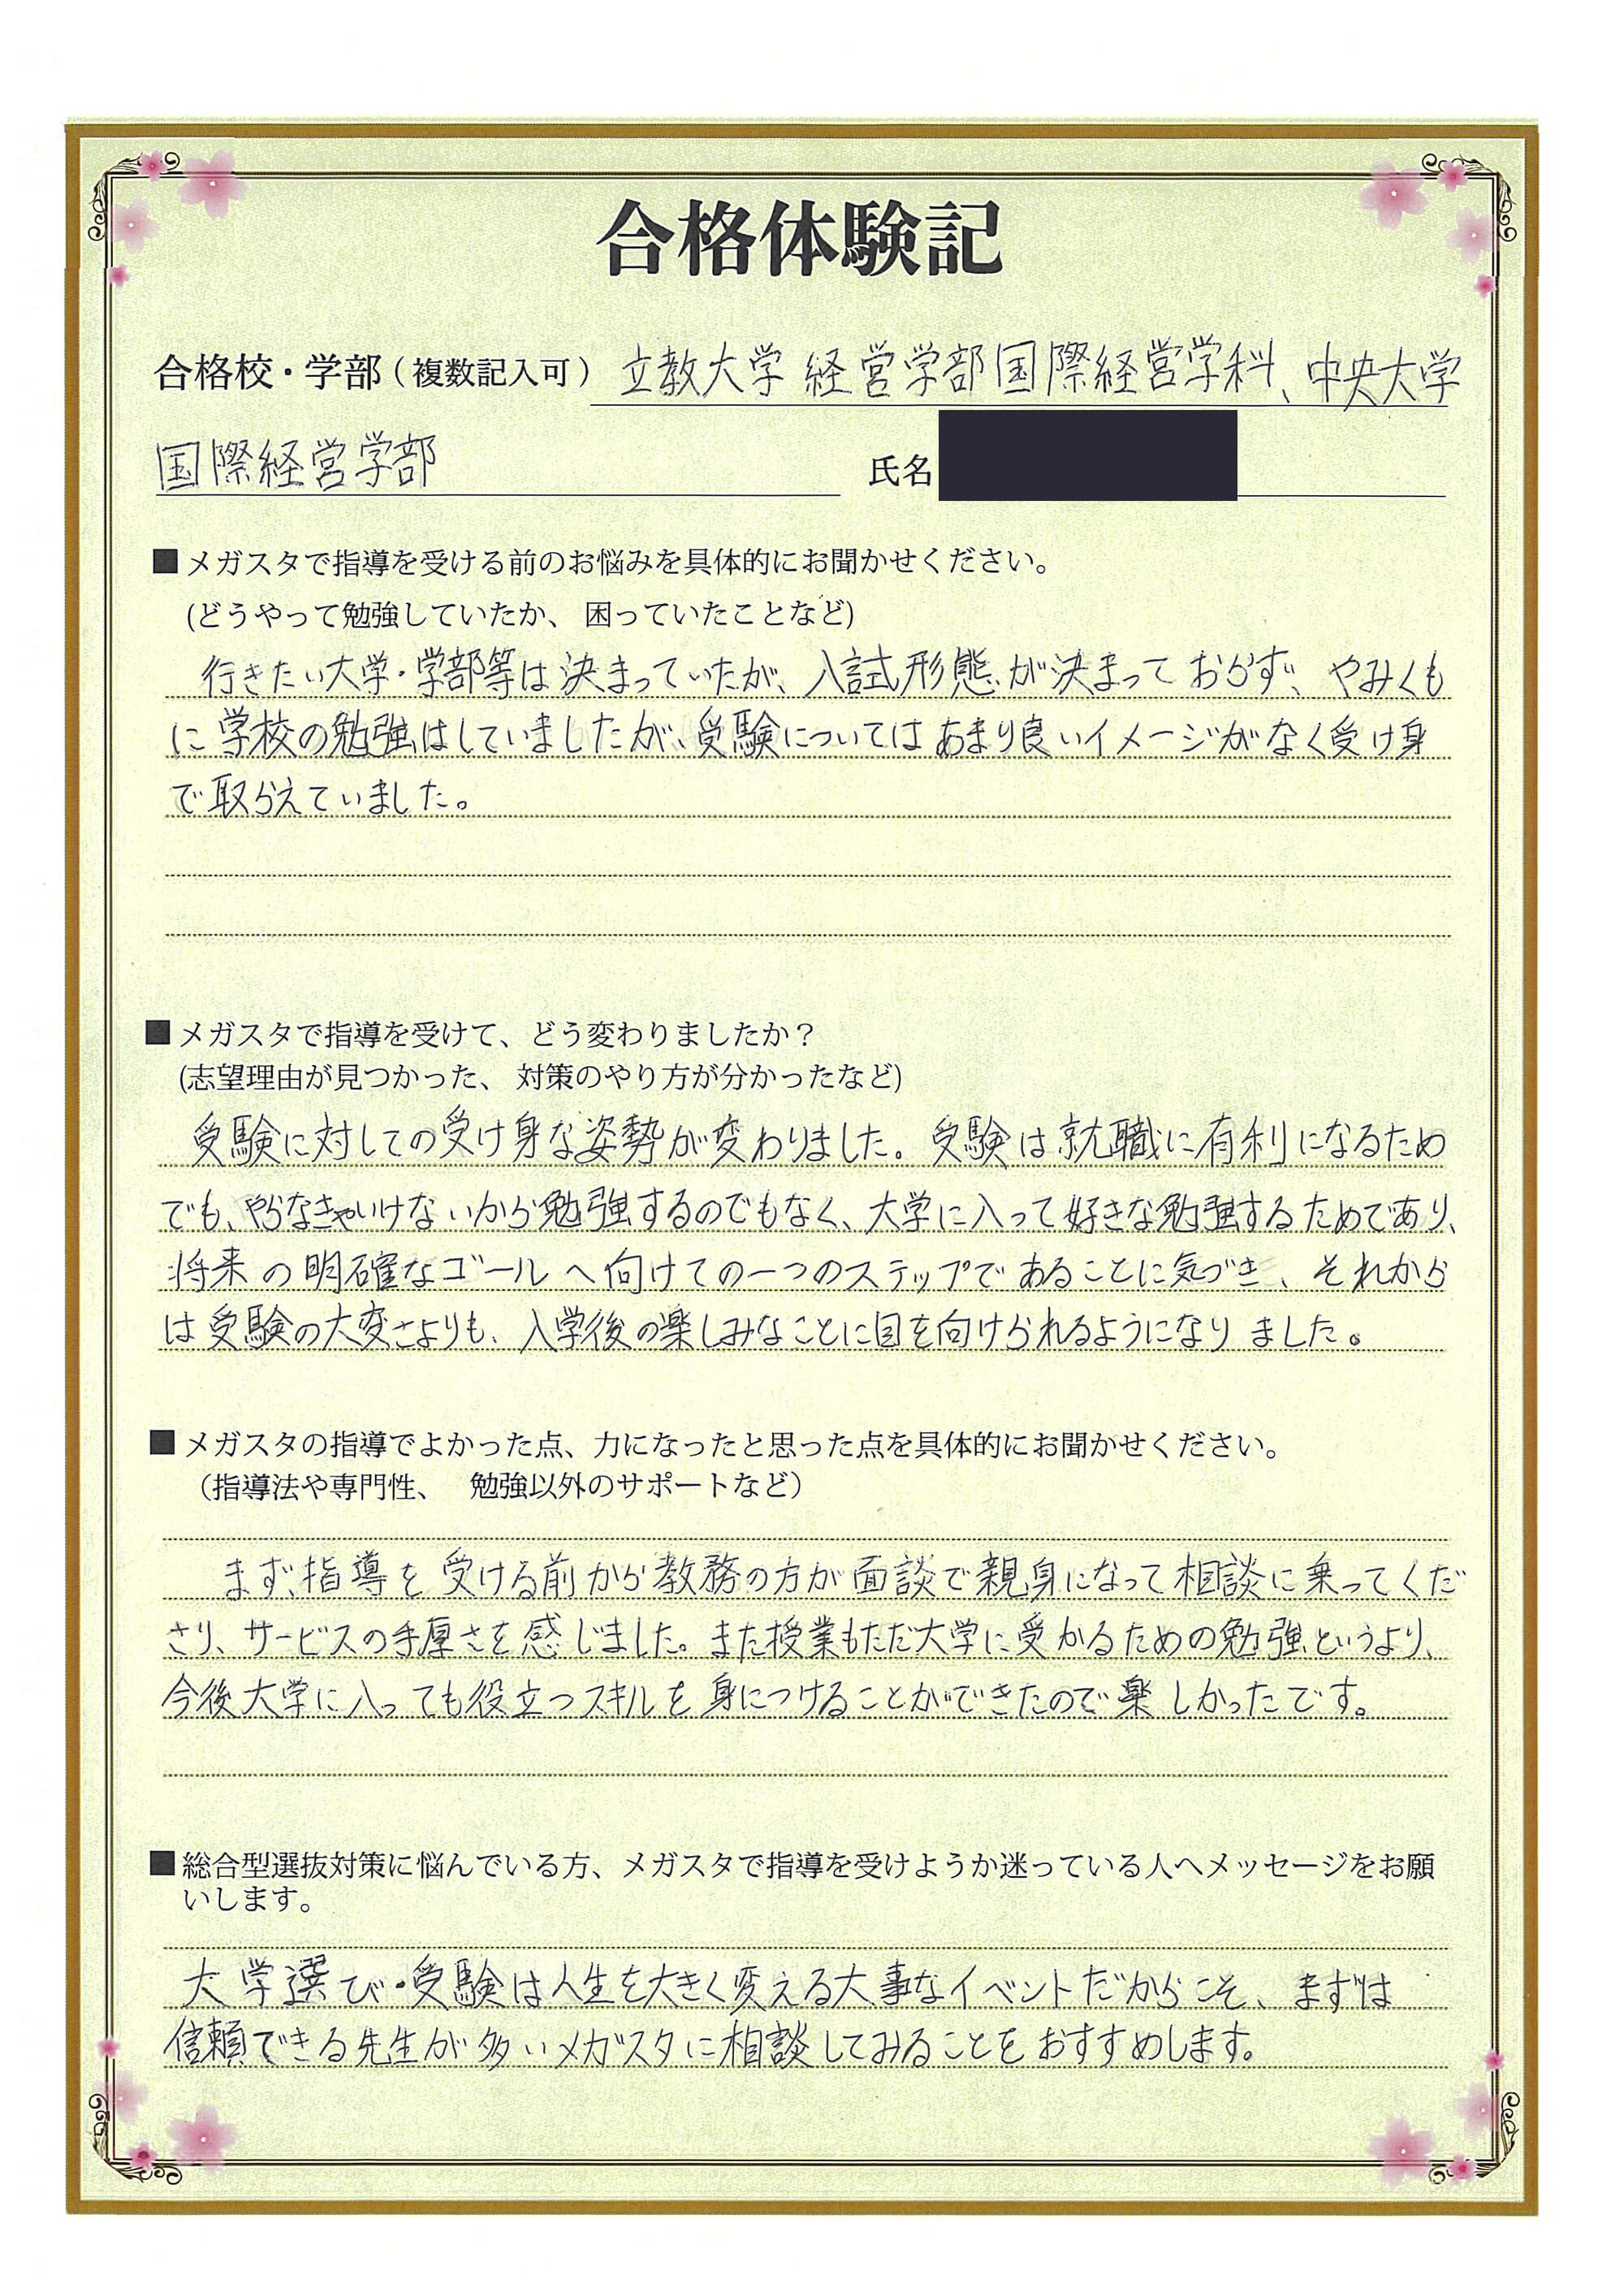 合格体験記
合格校・学部（複数記入可） 立教大学 経営学部国際経営学科、中央大学
国際経営学部 氏名
■メガスタで指導を受ける前のお悩みを具体的にお聞かせください。
(どうやって勉強していたか、困っていたことなど)
行きたい大学・学部等は決まっていたが、入試形態が決まっておらず、やみくも
に学校の勉強はしていましたが、受験についてはあまり良いイメージがなく受け身
で取らえていました。
■メガスタで指導を受けて、どう変わりましたか？
(志望理由が見つかった、対策のやり方が分かったなど)
受験に対しての受け身な姿勢が変わりました。受験は就職に有利になるため
でも、やらなきゃいけないから勉強するのでもなく、大学に入って好きな勉強するためであり、
将来の明確なゴールへ向けての一つのステップであることに気づき、それから
は受験の大変さよりも、入学後の楽しみなことに目を向けられるようになりました。
■メガスタの指導でよかった点、力になったと思った点を具体的にお聞かせください。
（指導法や専門性、 勉強以外のサポートなど）
まず、指導を受ける前から教務の方が面談で親身になって相談に乗ってくだ
さり、サービスの手厚さを感じました。また授業もただ大学に受かるための勉強というより、
今後大学に入っても役立つスキルを身につけることができたので楽しかったです。
■総合型選抜対策に悩んでいる方、メガスタで指導を受けようか迷っている人へメッセージをお願
いします。
大学選び・受験は人生を大きく変える大事なイベントだからこそ、まずは
信頼できる先生が多いメガスタに相談してみることをおすすめします。